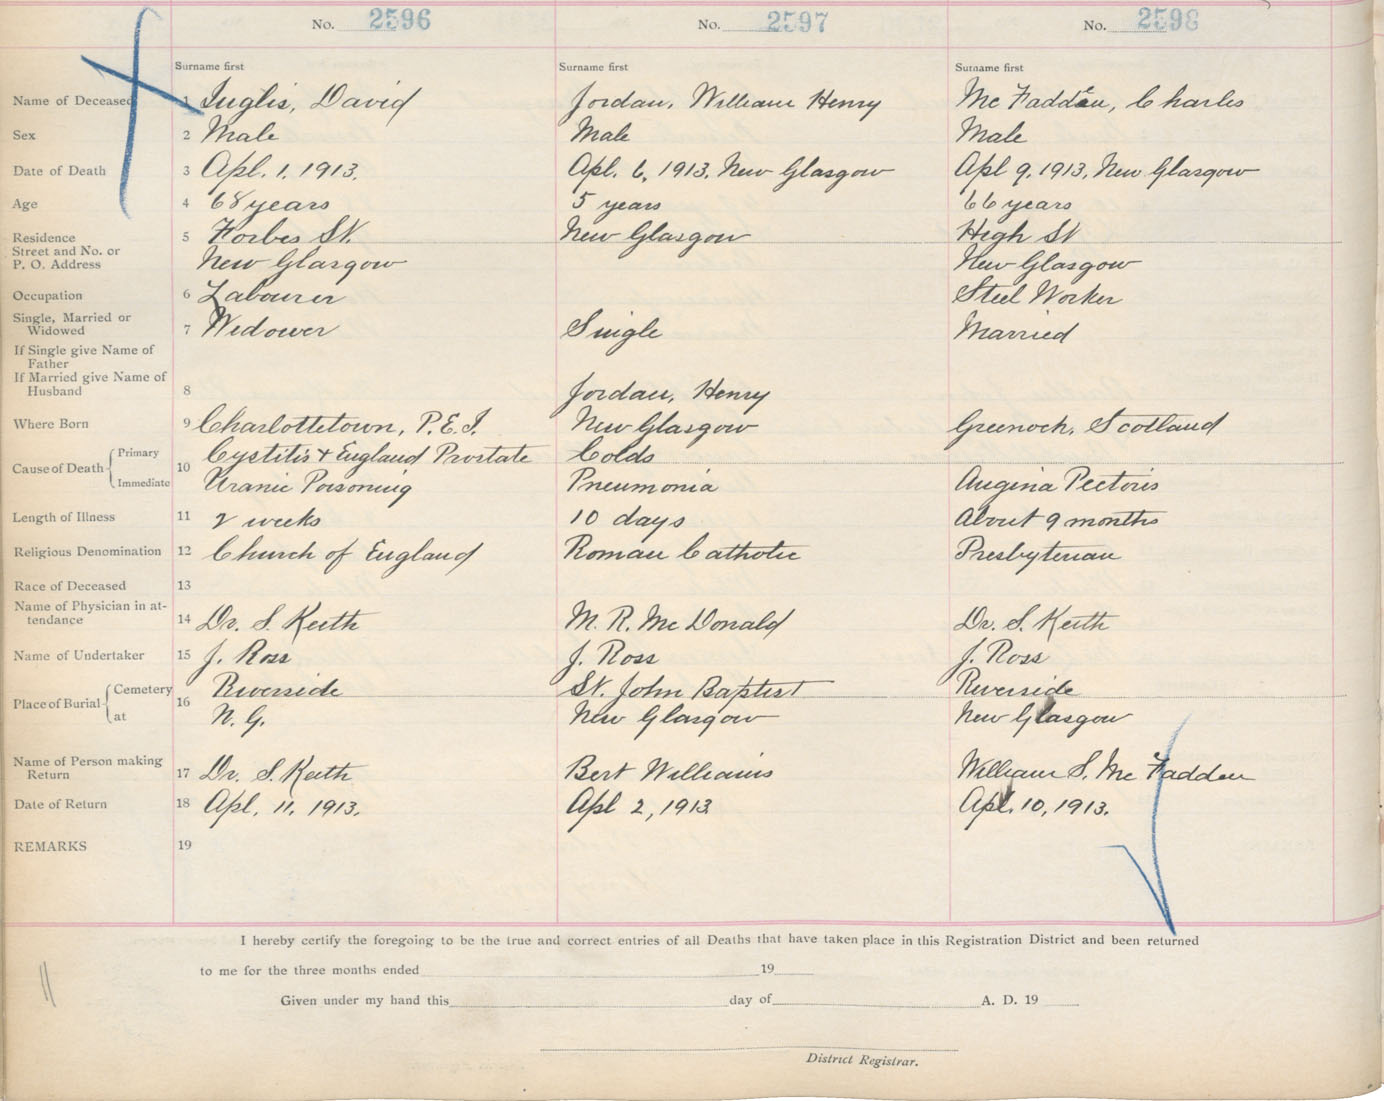 No. 2596 No. 2597 No. 2598
Surname first Surname first Surname first
Name of Deceased 1 Inglis, David Jordan, William Henry Mc Fadden, Charles
Sex 2 Male Male Male
Date of Death 3 Apl. 1. 1913. Apl. 6, 1913. New Glasgow Apl 9. 1913, New Glasgow
Age 4 68 years 5 years 66 years
Residence 5 Forbes St. New Glasgow High St
Street and No. or
P. O. Address New Glasgow New Glasgow
Occupation 6 Labourer Steel Worker
Single, Married or
Widowed 7 Widower Single Married
If Single give Name of
Father
If Married give Name of
Husband 8 Jordan, Henry
Where Born 9 Charlottetown, P.E.I. New Glasgow Greenock, Scotland
Cause of Death Primary 10 Cystitis + England Prostate Colds
Immediate Uranic Poisoning Pneumonia Angina Pectoris
Length of Illness 11 2 weeks 10 days About 9 months
Religious Denomination 12 Church of England Roman Catholic Presbyterian
Race of Deceased 13
Name of Physician in at-
tendance 14 Dr. S. Keith M. R. Mc Donald Dr. S. Keith
Name of Undertaker 15 J. Ross J. Ross J. Ross
Place of Burial Cemetery 16 Riverside St. John Baptist Riverside
at N. G. New Glasgow New Glasgow
Name of Person making
Return 17 Dr. S. Keith Bert Williams William S. Mc Fadden
Date of Return 18 Apl. 11. 1913. Apl 2, 1913 Apl. 10, 1913.
REMARKS 19
I hereby certify the foregoing to be the true and correct entries of all Deaths that have taken place in this Registration District and been returned
to me for the three months ended 19
Given under my hand this day of A. D. 19
District Registrar.